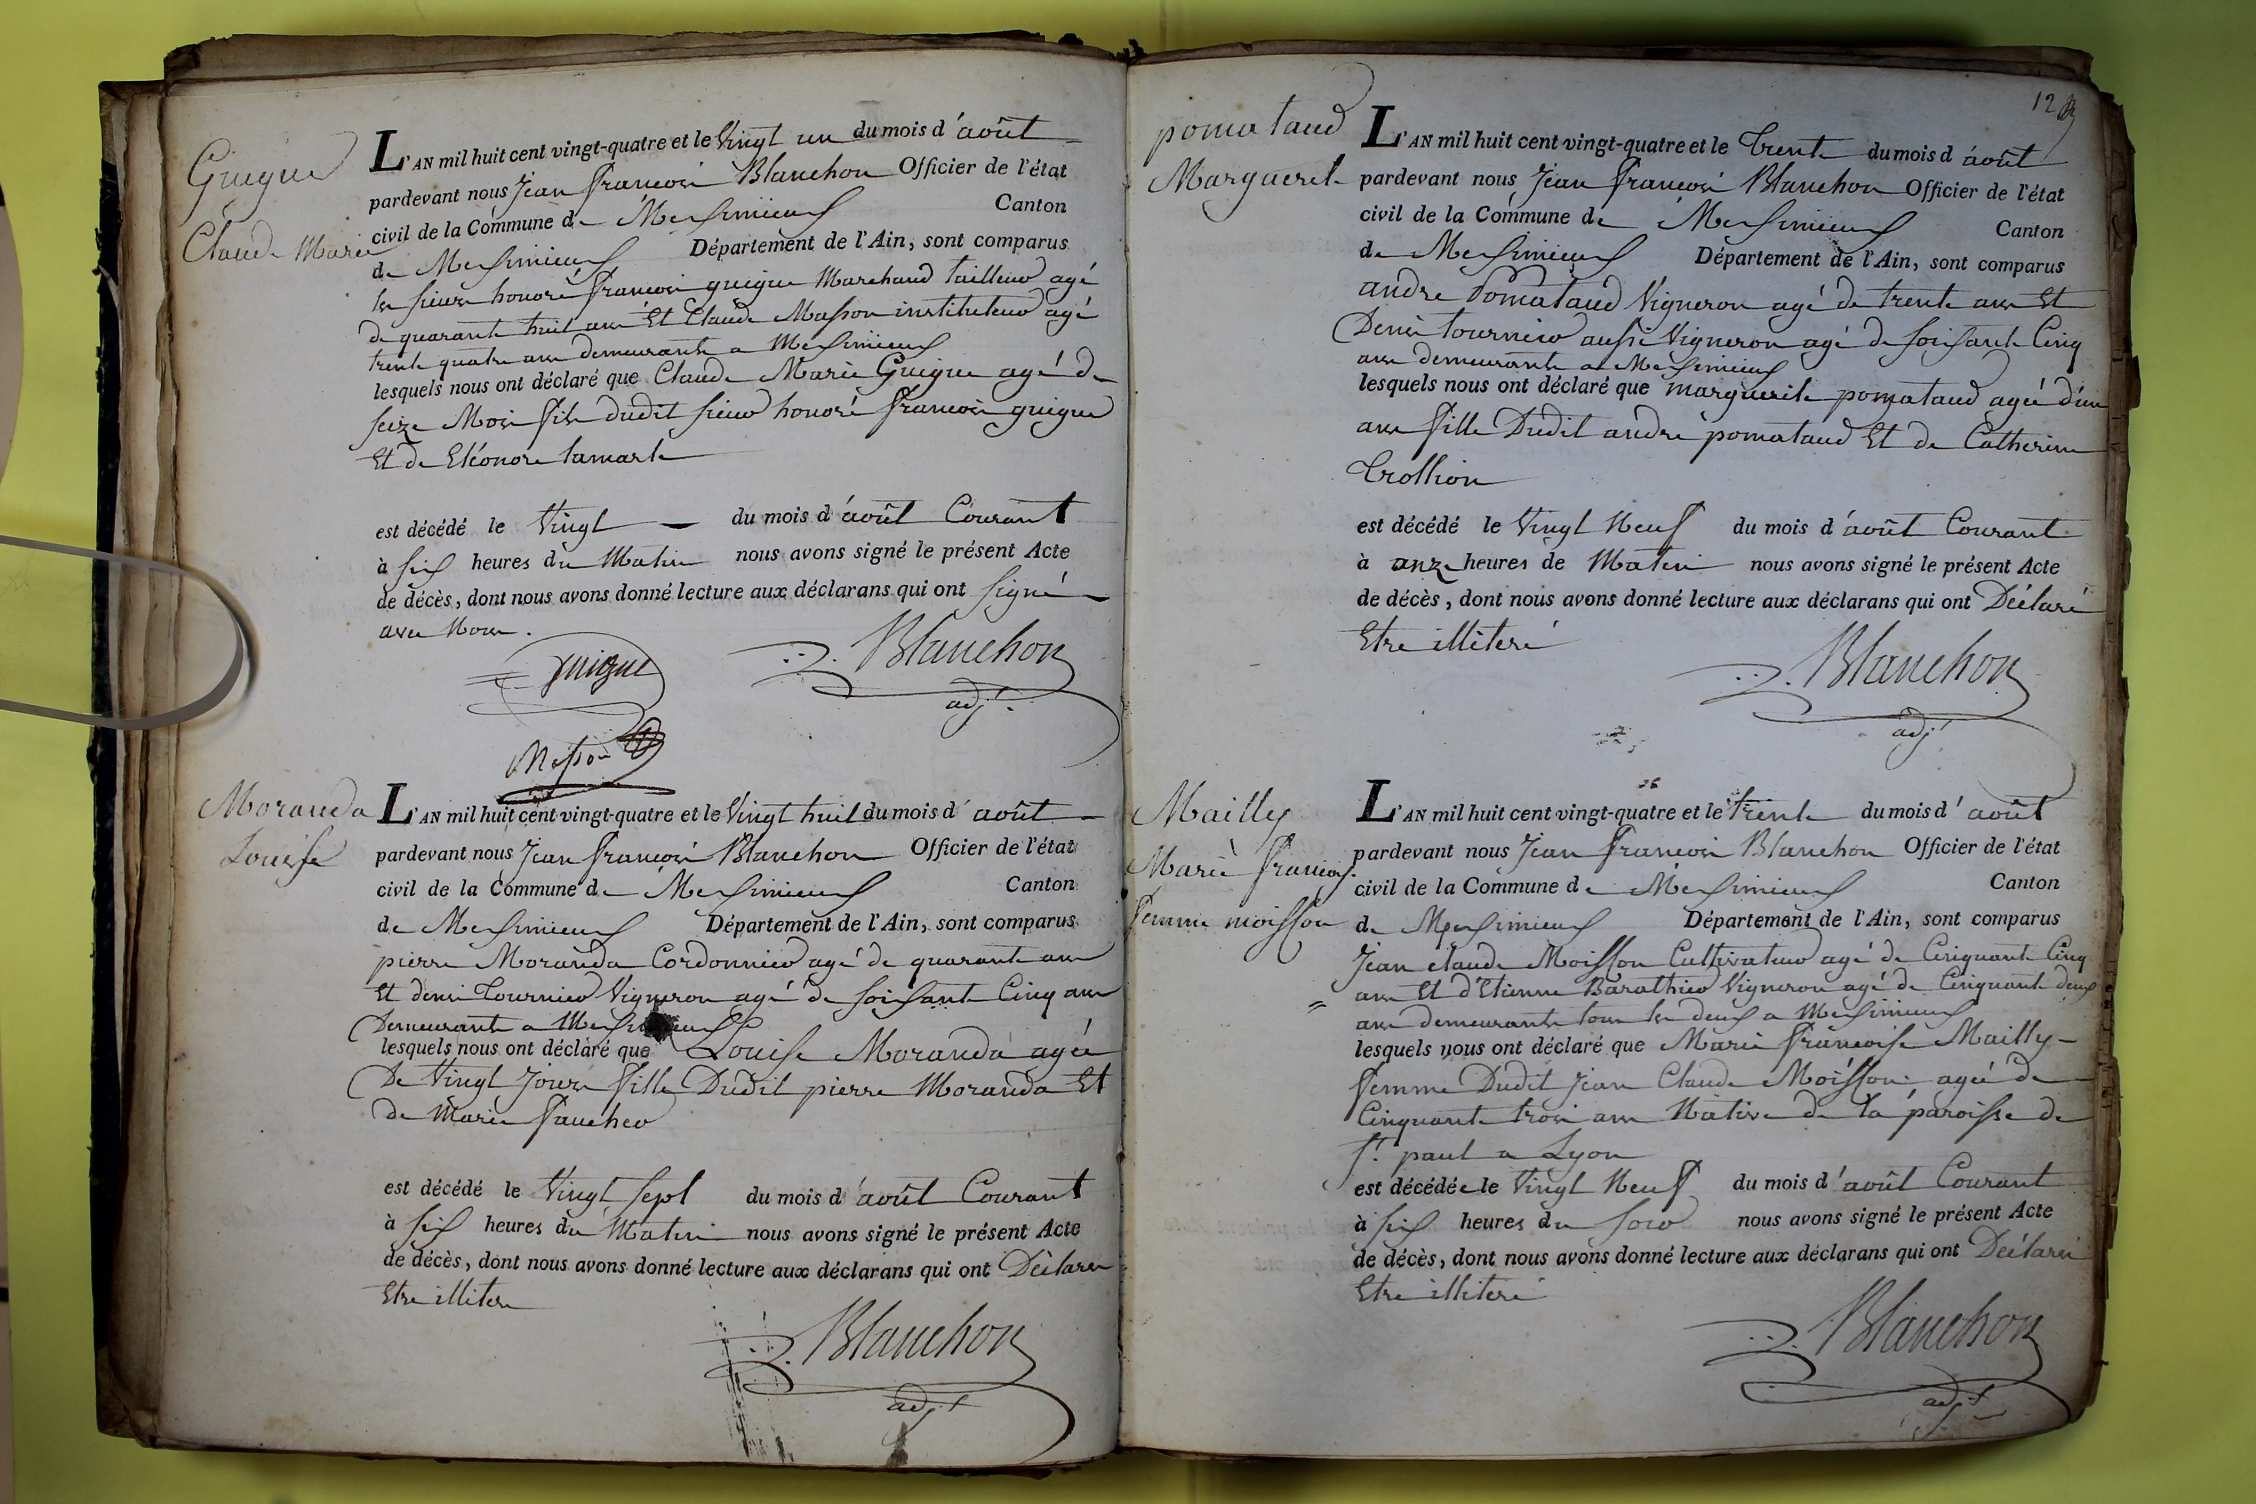 Guigue
Claude Marie
L'AN mil huit cent vingt-quatre et le Vingt un du mois d'août
pardevant nous Jean françois Blanchon Officier de l'état
civil de la Commune de Messimieux Canton
de Messimieux Département de l'Ain, sont comparus
les sieurs honoré françois guigue Marchand tailleur agé
de quarante huit ans Et Claude Masson instituteur agé
trente quatre ans demeurants a Messimieux
lesquels nous ont déclaré que Claude Marie Guigue agé de
seize Mois fils dudit sieur honoré françois guigue
Et de Eléonore lamarle
est décédé le Vingt du mois d'août Courant
à six heures du Matin nous avons signé le présent Acte
de décès, dont nous avons donné lecture aux déclarans qui ont signé
avec Nous.
guigue
Blanchon
adj.
Masson
Moranda
Louise
L'AN mil huit cent vingt-quatre et le Vingt huit du mois d'août
pardevant nous Jean françois Blanchon Officier de l'état
civil de la Commune de Messimieux Canton
de Messimieux Département de l'Ain, sont comparus
pierre Moranda Cordonnier agé de quarante ans
Et denis Tournier Vigneron agé de soixante Cinq ans
Demeurants a Messimieux
lesquels nous ont déclaré que Louise Moranda agée
De Vingt Jours fille Dudit pierre Moranda Et
de Marie faucher
est décédé le Vingt sept du mois d'août Courant
à six heures du Matin nous avons signé le présent Acte
de décès, dont nous avons donné lecture aux déclarans qui ont Déclarer
Etre illiters
Blanchon
adjt
12
pomataud
Marguerite
L'AN mil huit cent vingt-quatre et le Trente du mois d août
pardevant nous Jean françois Blanchon Officier de l'état
civil de la Commune de Messimieux Canton
de Messimieux Département de l'Ain, sont comparus
andre Pomataud Vigneron agé de trente ans Et
Denis tournier aussi Vigneron agé de soixante Cinq
ans demeurants a Messimieux
lesquels nous ont déclaré que marguerite pomataud agée d'un
ans fille Dudit andré pomataud Et de Catherine
Trollion
est décédé le Vingt Neuf du mois d'août Courant
à onze heures de Matin nous avons signé le présent Acte
de décès, dont nous avons donné lecture aux déclarans qui ont Déclaré
Etre illiteré
Blanchon
adj
Mailly
Marie françoise
femme moisson
L'AN mil huit cent vingt-quatre et le trente du mois d'août
pardevant nous Jean françois Blanchon Officier de l'état
civil de la Commune de Messimieux Canton
de Messimieux Département de l'Ain, sont comparus
Jean claude Moisson Cultivateur agé de Cinquante Cinq
ans Et d'Etienne Barathier Vigneron agé de Cinquante deux
ans demeurants tous les deux a Messimieux
lesquels nous ont déclaré que Marie françoise Mailly
femme Dudit Jean Claude Moisson agée de
Cinquante trois ans Native de la paroisse de
St. paul a Lyon
est décédée le Vingt Neuf du mois d'août Courant
à six heures du soir nous avons signé le présent Acte
de décès, dont nous avons donné lecture aux déclarans qui ont Déclaré
Etre illiteré
Blanchon
adjt